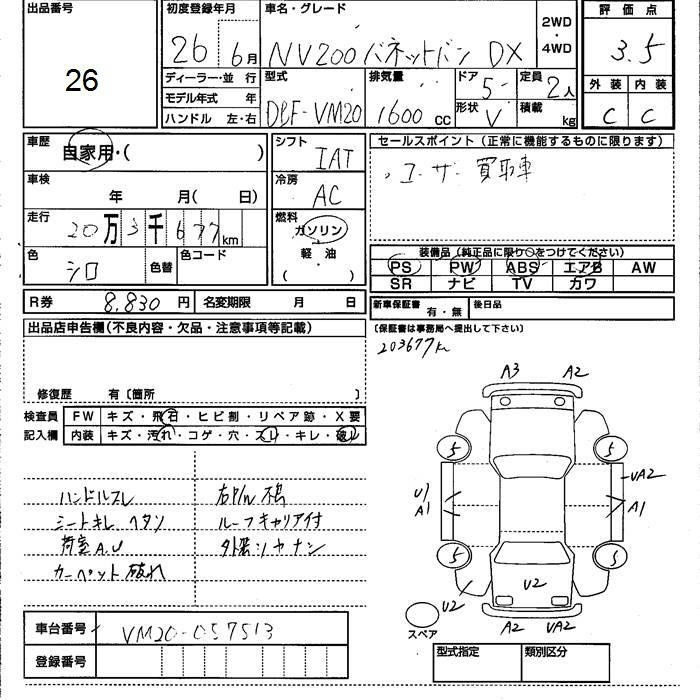 出品番号
26
初度登録年月
26年 6月
車名・グレード
NV200 バネットバン DX
2WD
・
4WD
評価点
3.5
ディーラー・並 行
モデル年式 年
ハンドル 左・右
型式
DBF-VM20
排気量
1600 cc
ドア
5
形状
V
定員
2人
積載
kg
外装 内装
C C
車歴
自家用・( )
シフト
IAT
セールスポイント(正常に機能するものに限ります)
ユーザー買取車
車検
年 月( 日)
冷房
AC
走行
20万3千677km
燃料
ガソリン
軽 油
( )
色
シロ
色替
色コード
装備品(純正品に限り○をつけてください)
PS PW ABS エアB AW
SR ナビ TV カワ
R券 8,830 円 名変期限 月 日
新車保証書 有・無 後日品
(保証書は事務局へ提出して下さい)
203677km
出品店申告欄(不良内容・欠品・注意事項等記載)
修復歴 有〔箇所 〕
検査員
記入欄
FW キズ・飛石・ヒビ割・リペア跡・X要
内装 キズ・汚れ・コゲ・穴・スレ・キレ・破レ
ハンドルスレ
シートキレ ヘタリ
荷室A.U
カーペット破れ
ルーフキャリア付
A3 A2
5 5
U1
A1
UA2
A1
5 5
U2
U2
A2 UA2
スペア
車台番号 VM20-057513
登録番号
型式指定 類別区分